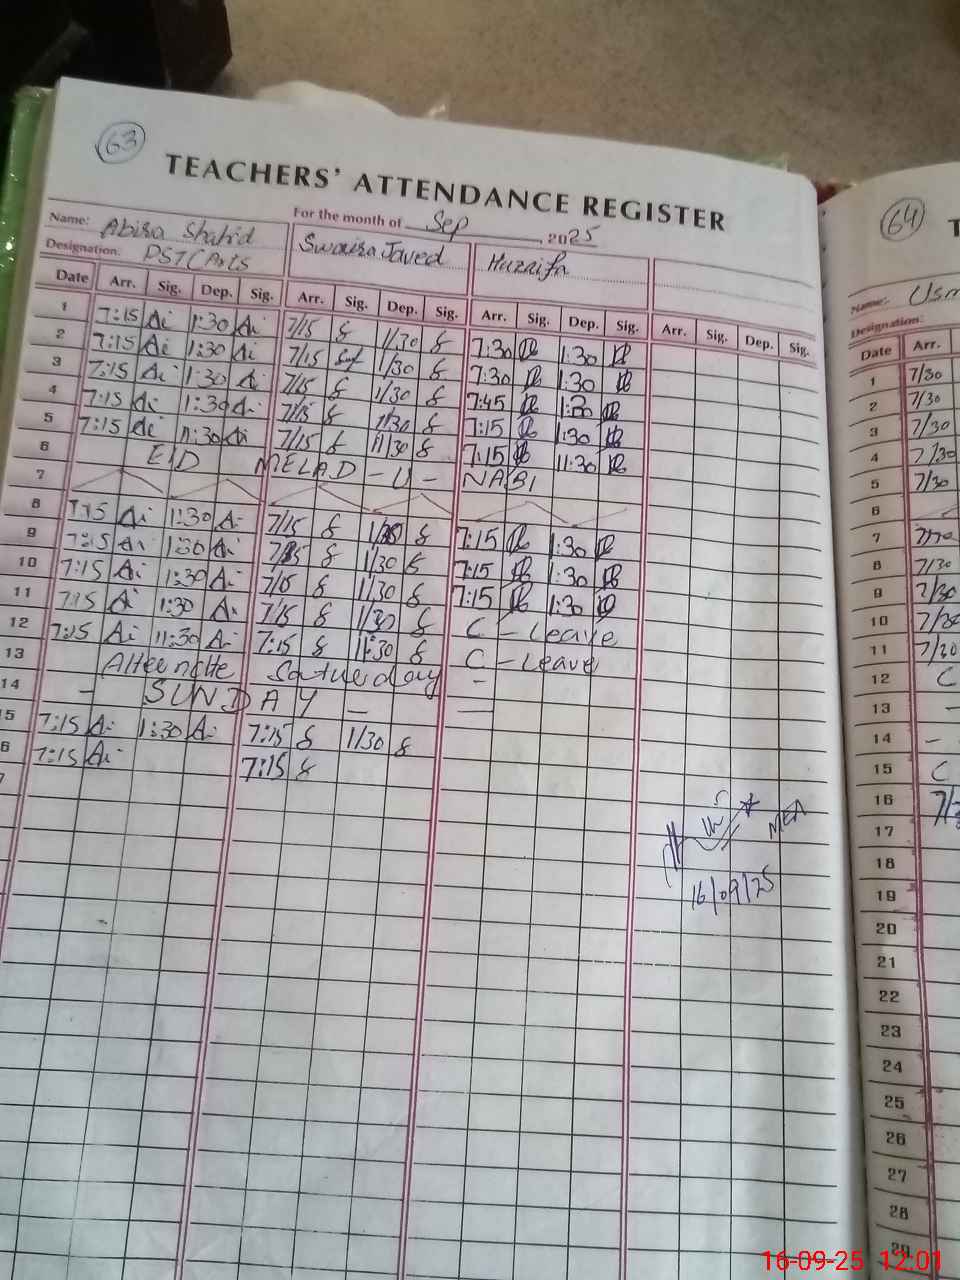 63
TEACHERS' ATTENDANCE REGISTER
For the month of Sep, 2025
Name: Abira Shahid Swaira Javed Huzaifa
Designation:
Date Arr. Sig. Dep. Sig. Arr. Sig. Dep. Sig. Arr. Sig. Dep. Sig. Arr. Sig. Dep. Sig.
1 7:15 Ai 1:30 Ai 7/15 1/30 7:30 1:30
2 7:15 Ai 1:30 Ai 7/15 1/30 7:30 1:30
3 7:15 Ai 1:30 Ai 7/15 1/30 7:45 1:30
4 7:15 Ai 1:30 Ai 7/15 1/30 7:15 1:30
5 7:15 Ai 11:30 Ai 7/15 11/30 7:15 11:30
6 EID MELAD - U - NABI
7
8 7:15 Ai 1:30 Ai 7/15 1/30 7:15 1:30
9 7:15 Ai 1:30 Ai 7/15 1/30 7:15 1:30
10 7:15 Ai 1:30 Ai 7/15 1/30 7:15 1:30
11 7:15 Ai 1:30 Ai 7/15 1/30 C - Leave
12 7:15 Ai 11:30 Ai 7:15 11:30 C - Leave
13 Saturday -
14 - SUNDAY - -
5 7:15 Ai 1:30 Ai 7:15 1/30
6 7:15 Ai 7:15
7
MEA
16/09/25
64
T
Name: Usm
Designation:
Date Arr.
1 7/30
2 7/30
3 7/30
4 7/30
5 7/30
6
7 7/30
8 7/30
9 7/30
10 7/30
11 7/30
12 C
13 -
14 -
15 C
16
17
18
19
20
21
22
23
24
25
26
27
28
29
16-09-25 12:01